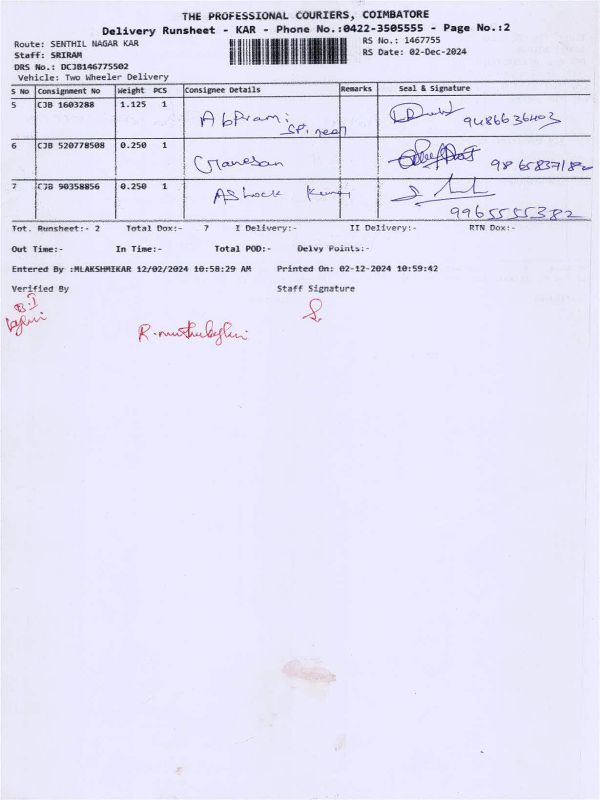 THE PROFESSIONAL COURIERS, COIMBATORE
Delivery Runsheet - KAR - Phone No.:0422-3505555 - Page No.:2
Route: SENTHIL NAGAR KAR
RS No.: 1467755
Staff: SRIRAM
RS Date: 02-Dec-2024
DRS No.: DCJB146775502
Vehicle: Two Wheeler Delivery
S No Consignment No Weight PCS Consignee Details Remarks Seal & Signature
5 CJB 1603288 1.125 1 Abirami 9486636403
6 CJB 520778508 0.250 1 Ganesan
7 CJB 90358856 0.250 1 Ashock Kumar 9965555382
Tot. Runsheet:- 2 Total Dox:- 7 I Delivery:- II Delivery:- RTN Dox:-
Out Time:- In Time:- Total POD:- Delvy Points:-
Entered By :MLAKSHMIKAR 12/02/2024 10:58:29 AM Printed On: 02-12-2024 10:59:42
Verified By Staff Signature